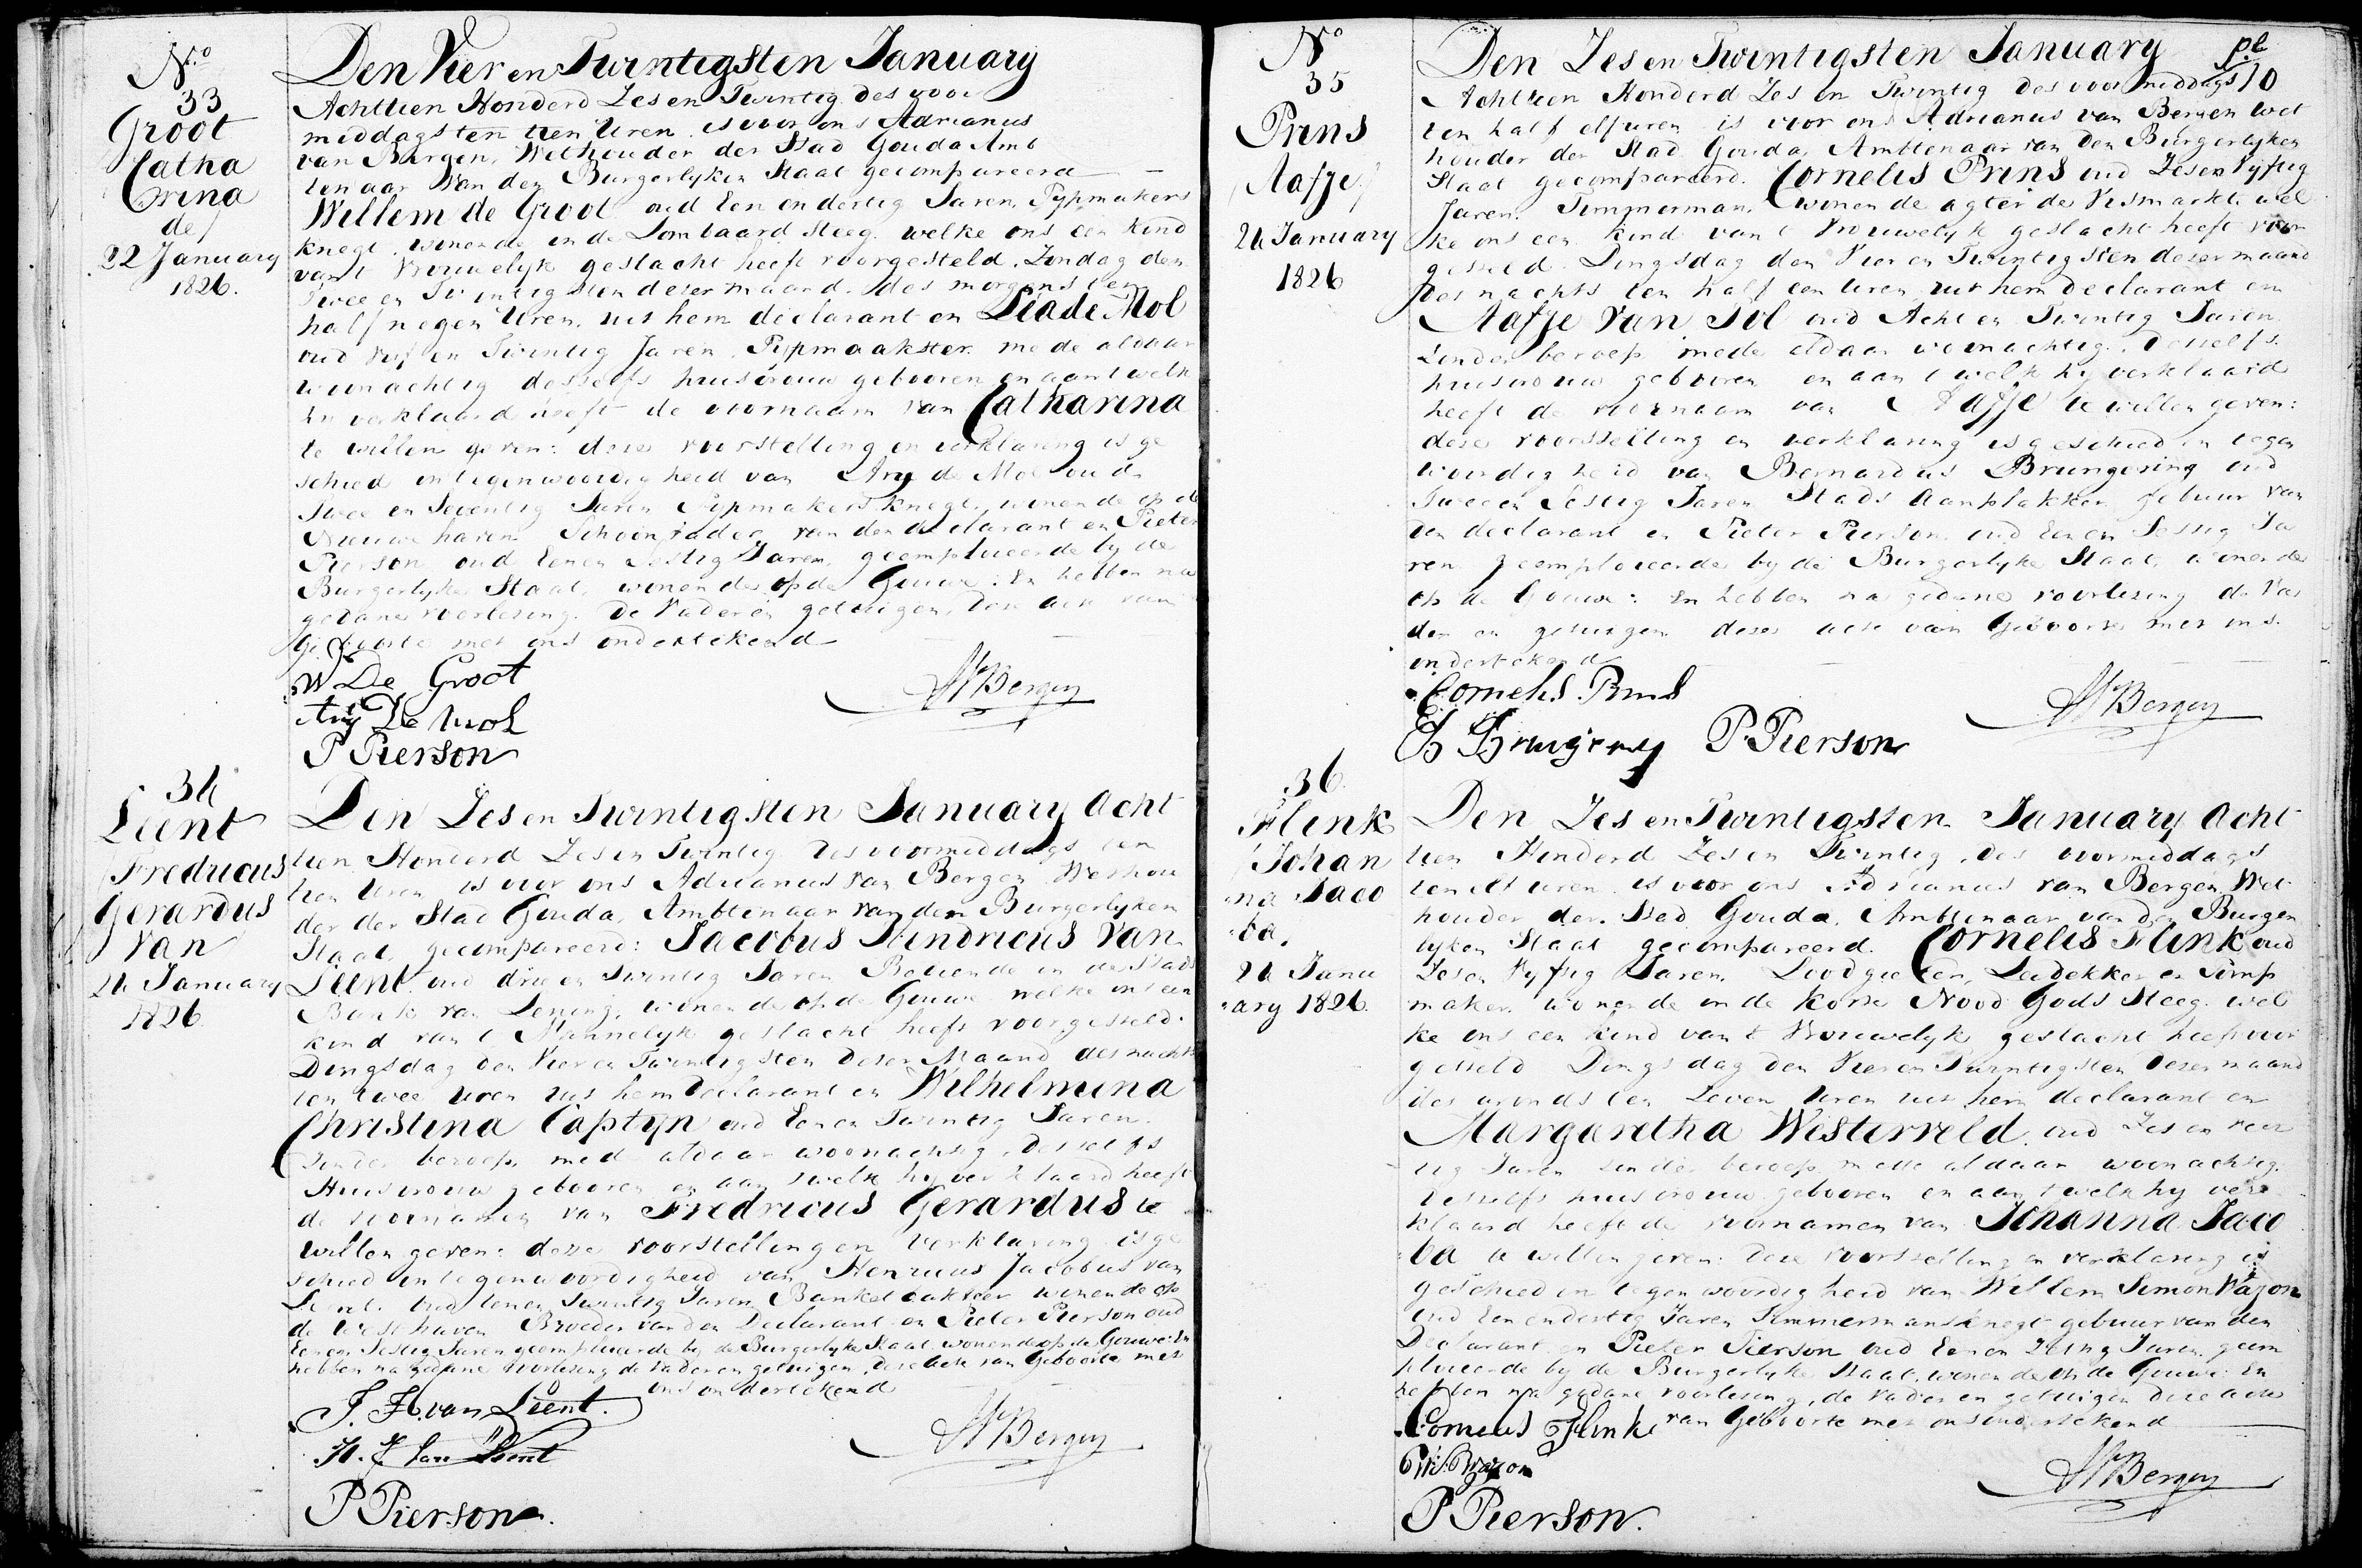 No
33
Groot
Catha
rina
de
22 January
1826.
Den Vier en Twintigsten January
Achttien Honderd Zes en Twintig des voor
middags ten tien Uren is voor ons Adrianus
van Bergen, Wethouder der Stad Gouda Amb
tenaar van den Burgerlyken Staat gecompareerd
Willem de Groot oud Een en dertig Jaren, Pypmakers
knegt wonende in de Lombaard steeg welke ons een Kind
van t Vrouwelyk geslacht heeft voorgesteld. Zondag den
Twee en Twintigsten dezer maand des morgens ten
half negen Uren, uit hem declarant en Lia de Mol
oud Vyf en Twintig Jaren, Pypmaakster mede aldaar
woonachtig desselfs huisvrouw gebooren en aan t welk
hy verklaard heeft de voornaam van Catharina
te willen geven: deze voorstelling en verklaring is ge
schied in tegenwoordigheid van Ary de Mol oud
Twee en Seventig Jaren Pypmakers knegt, wonende op de
Nieuwe haven Schoonvader van den declarant en Pieter
Pierson oud Een en Sestig Jaren, geemploieerde by de
Burgerlyke Staat, wonende op de Gouwe: En hebben na
gedane voorlezing de Vader en getuigen, deze acte van
Geboorte met ons ondertekend
W De Groot
Ary De Mol
P Pierson
AVBergen
34
Leent
Fredricus
Gerardus
van
24 January
1826.
Den Zes en Twintigsten January Acht
tien Honderd Zes en Twintig des voormiddags ten
tien Uren is voor ons Adrianus van Bergen Wethou
der der Stad Gouda, Ambtenaar van den Burgerlyken
Staat, gecompareerd: Jacobus Hendricus van
Leent oud drie en Twintig Jaren Bediende in de Stads
Bank van Lening, wonende op de Gouwe welke ons een
kind van t Mannelyk geslacht heeft voorgesteld.
Dingsdag den Vier en Twintigsten dezer Maand des nachts
ten twee Uren uit hem declarant en Wilhelmina
Christina Captyn oud Een en Twintig Jaren
zonder beroep mede aldaar woonachtig, desselfs
Huisvrouw gebooren en aan t welk hy verklaard heeft
de voornamen van Fredricus Gerardus te
willen geven: deze voorstelling en verklaring is ge
schied in tegenwoordigheid van Henricus Jacobus van
Leent oud Een en Twintig Jaren Banketbakker wonende op
de Westhaven Broeder van den Declarant en Pieter Pierson oud
Een en Sestig Jaren geemploieerde by de Burgerlyke Staat wonende op de Gouwe: En
hebben na gedane voorlezing de Vader en getuigen, deze acte van Geboorte met
ons ondertekend
J. H. van Leent.
H. J van Leent
P Pierson
AVBergen
No
35
Prins
Aafje
24 January
1826
pl
10
Den Zes en Twintigsten January
Achttien Honderd Zes en Twintig des voormiddags
ten half elf uren is voor ons Adrianus van Bergen Wet
houder der Stad Gouda, Ambtenaar van den Burgerlyken
Staat gecompareerd. Cornelis Prins oud Zes en Vyftig
Jaren. Timmerman, wonende agter de Vismarkt, wel
ke ons een kind van t Vrouwelyk geslacht heeft voor
gesteld Dingsdag den Vier en Twintigsten dezer maand
des nachts ten half een Uren, uit hem declarant en
Aafje van Tol oud Acht en Twintig Jaren
zonder beroep mede aldaar woonachtig. desselfs
huisvrouw gebooren en aan t welk hy verklaard
heeft de voornaam van Aafje te willen geven:
deze voorstelling en verklaring is geschied in tegen
woordigheid van Bernardus Brungering oud
Twee en Sestig Jaren Stads Aanplakker, gebuur van
den declarant en Pieter Pierson oud Een en Sestig Ja
ren geemploieerde by de Burgerlyke Staat, wonende
op de Gouwe: En hebben na gedane voorlezing de Va
der en getuigen deze acte van Geboorte met ons
ondertekend
Cornelis Prins
P Pierson
AVBergen
36.
Flink
Johan
na Jaco
ba.
24 Janu
ary 1826.
Den Zes en Twintigsten January Acht
tien Honderd Zes en Twintig, des voormiddags
ten elf uren is voor ons Adrianus van Bergen, Wet
houder der Stad Gouda, Ambtenaar van den Burger
lyken Staat gecompareerd. Cornelis Flink oud
Zes en Vyftig Jaren, Loodgieter, Leidekker en Pomp
maker wonende in de Korte Nood Gods Steeg wel
ke ons een kind van t Vrouwelyk geslacht heeft voor
gesteld Dingsdag den Vier en Twintigsten dezer maand
des avonds ten Zeven Uren uit hem declarant en
Margaretha Westerveld, oud Zes en veer
tig Jaren zonder beroep mede aldaar woonachtig.
desselfs huisvrouw gebooren en aan t welk hy ver
klaard heeft de voornamen van Johanna Jaco
ba te willen geven: deze voorstelling en verklaring is
geschied in tegenwoordigheid van Willem Simon Wazon
oud Een en dertig Jaren Timmermans knegt gebuur van den
Declarant en Pieter Pierson oud Een en Zestig Jaren geem
ploieerde by de Burgerlyke Staat, wonende op de Gouwe: En
hebben na gedane voorlezing, de Vader en getuigen deze acte
van Geboorte met ons ondertekend
Cornelis Flink
W. S. Wazon
P Pierson.
AVBergen